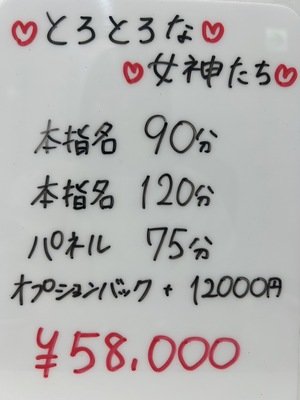 ♡とろとろな♡
♡女神たち♡
本指名 90分
本指名 120分
パネル 75分
オプションバック + 12000円
¥58.000